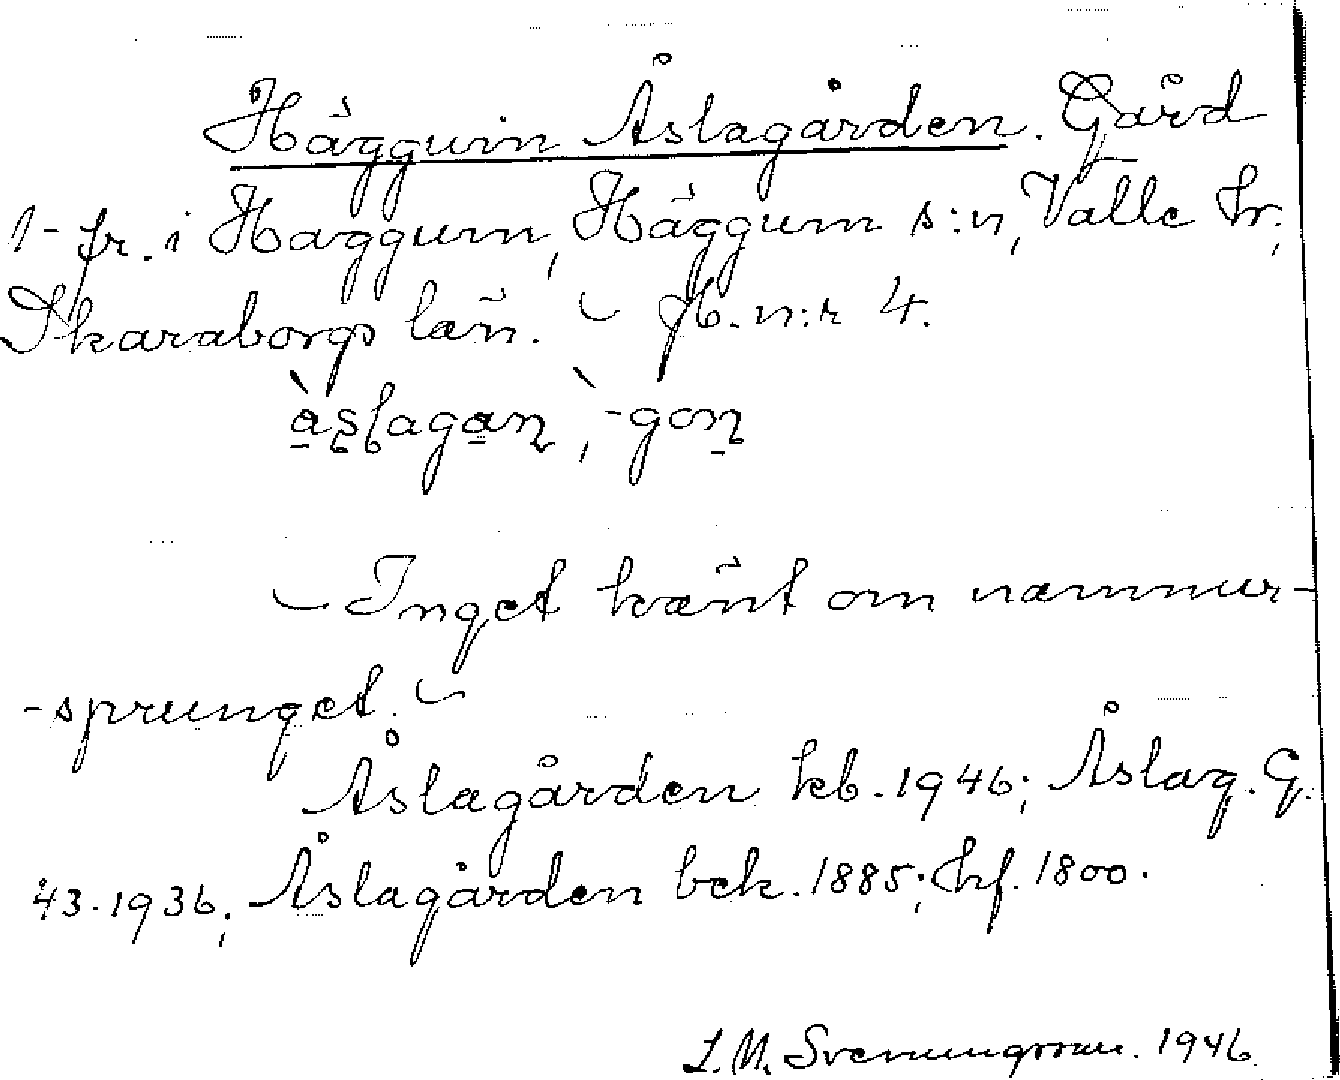 Häggum Åslagården. Gård
1 - fr. i Häggum, Häggum s:n, Valle hr;
Skaraborgs län. – Jb. n:r 4.
àslagan, -gon
– Inget känt om namnur-
-sprunget. –
Åslagården kb. 1946; Åslag. G.
43. 1936; Åslagården bek. 1885; hf. 1800.
S. M. Svenungsson. 1946.